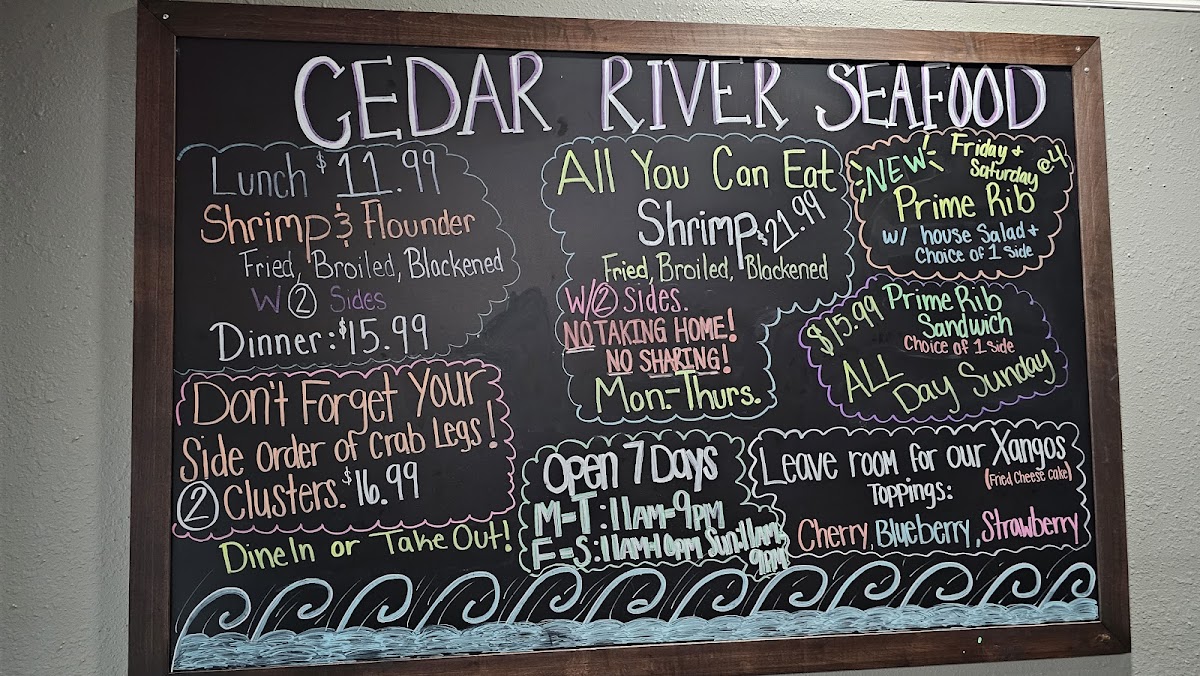 CEDAR RIVER SEAFOOD
Lunch $11.99
Shrimp & Flounder
Fried, Broiled, Blackened
W/ 2 Sides
Dinner: $15.99
Don't Forget Your
Side Order of Crab Legs!
2 Clusters. $16.99
Dine In or Take Out!
All You Can Eat
Shrimp $21.99
Fried, Broiled, Blackened
W/ 2 Sides.
NO TAKING HOME!
NO SHARING!
Mon.-Thurs.
Open 7 Days
M-T: 11AM-9PM
F-S: 11AM-10PM Sun: 11AM-
9PM
NEW! Friday +
Saturday @4
Prime Rib
w/ house Salad +
Choice of 1 side
$15.99 Prime Rib
Sandwich
Choice of 1 side
ALL Day Sunday
Leave room for our Xangos
(Fried Cheese cake)
Toppings:
Cherry, Blueberry, Strawberry